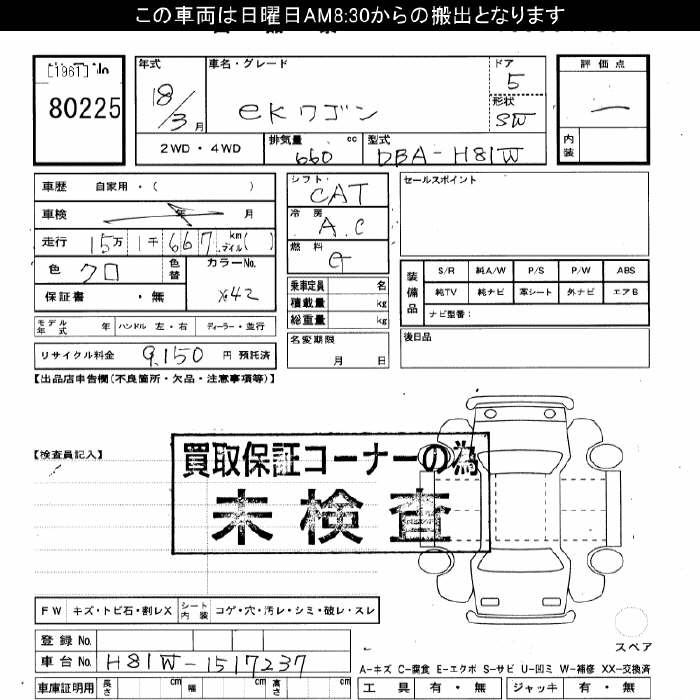 この車両は日曜日AM8:30からの搬出となります
[1961] No
80225
年式
18/3月
車名・グレード
eKワゴン
ドア
5
形状
SW
評価点
—
内装
2WD・4WD
排気量
660 cc
型式
DBA-H81W
車歴 自家用・( )
車検 年 月
走行 15万1千667 km マイル( )
色 クロ
色替
カラーNo.
X42
保証書 ・無
モデル年式 年 ハンドル 左・右 ディーラー・並行
リサイクル料金 9,150 円 預託済
シフト
CAT
冷房
A.C
燃料
G
乗車定員 名
積載量 kg
総重量 kg
名変期限
月 日
セールスポイント
装備品
S/R 純A/W P/S P/W ABS
純TV 純ナビ 革シート 外ナビ エアB
ナビ型番:
後日品
【出品店申告欄(不良箇所・欠品・注意事項等)】
【検査員記入】
買取保証コーナーの為
未検査
FW キズ・トビ石・割レX
シート内装 コゲ・穴・汚レ・シミ・破レ・スレ
登録No.
車台No. H81W-1517237
車庫証明用 長さ cm 幅 cm 高さ cm
スペア
A-キズ C-腐食 E-エクボ S-サビ U-凹ミ W-補修 XX-交換済
工具 有・無 ジャッキ 有・無